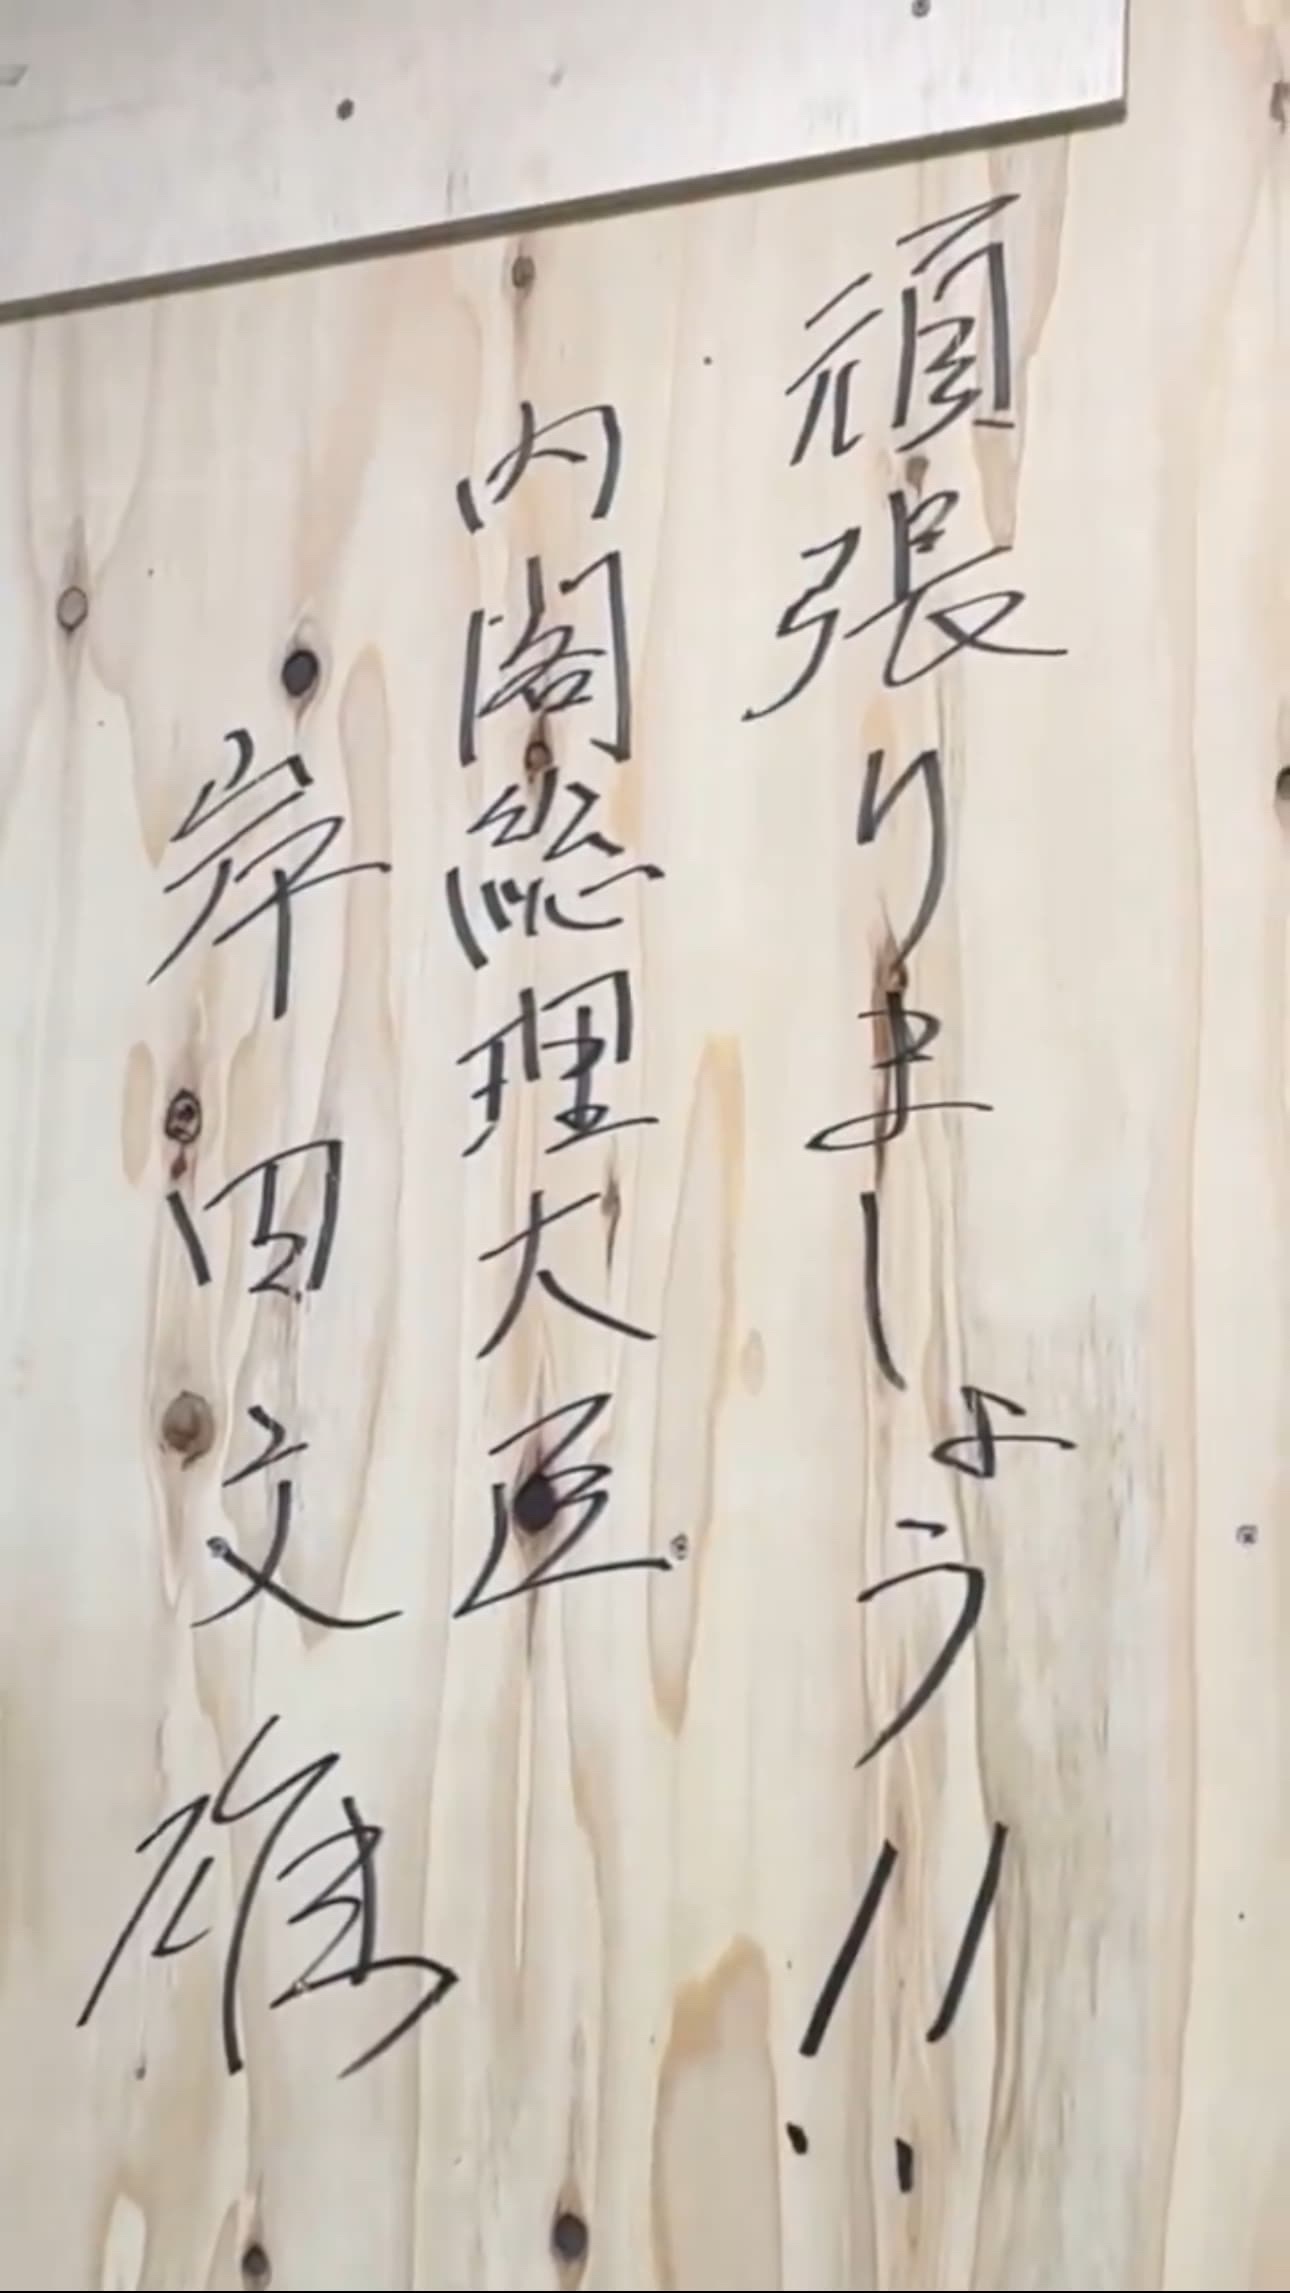 頑張りましょう!!
内閣総理大臣
岸田文雄